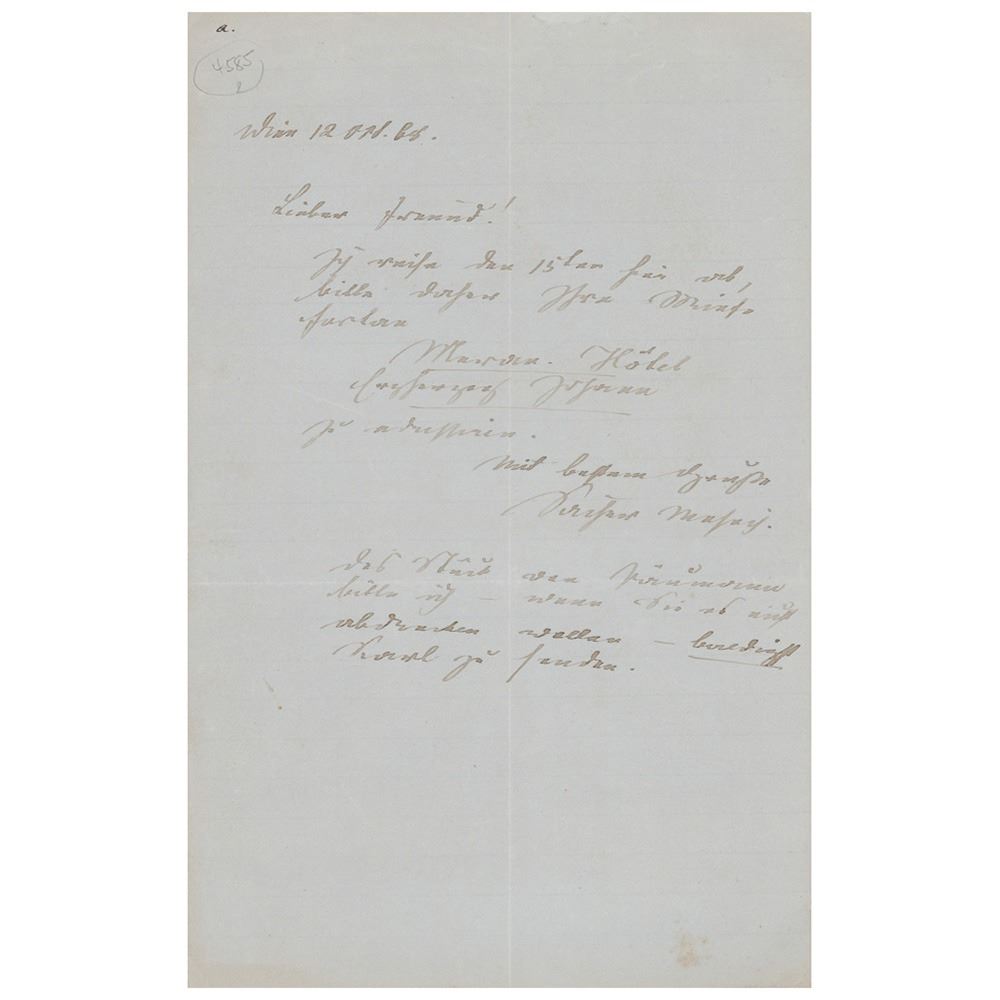 a.
4585
2
Wien 12 Okt. 68.
Lieber Freund!
Ich reise den 15ten hier ab,
bitte daher Ihre Briefe
fortan
Meran. Hôtel
Erzherzog Johann
zu adressiren.
Mit bestem Gruße
Sacher Masoch.
Das Stück von
bitte ich – wenn Sie es nicht
abdrucken wollen – baldigst
Karl zu senden.